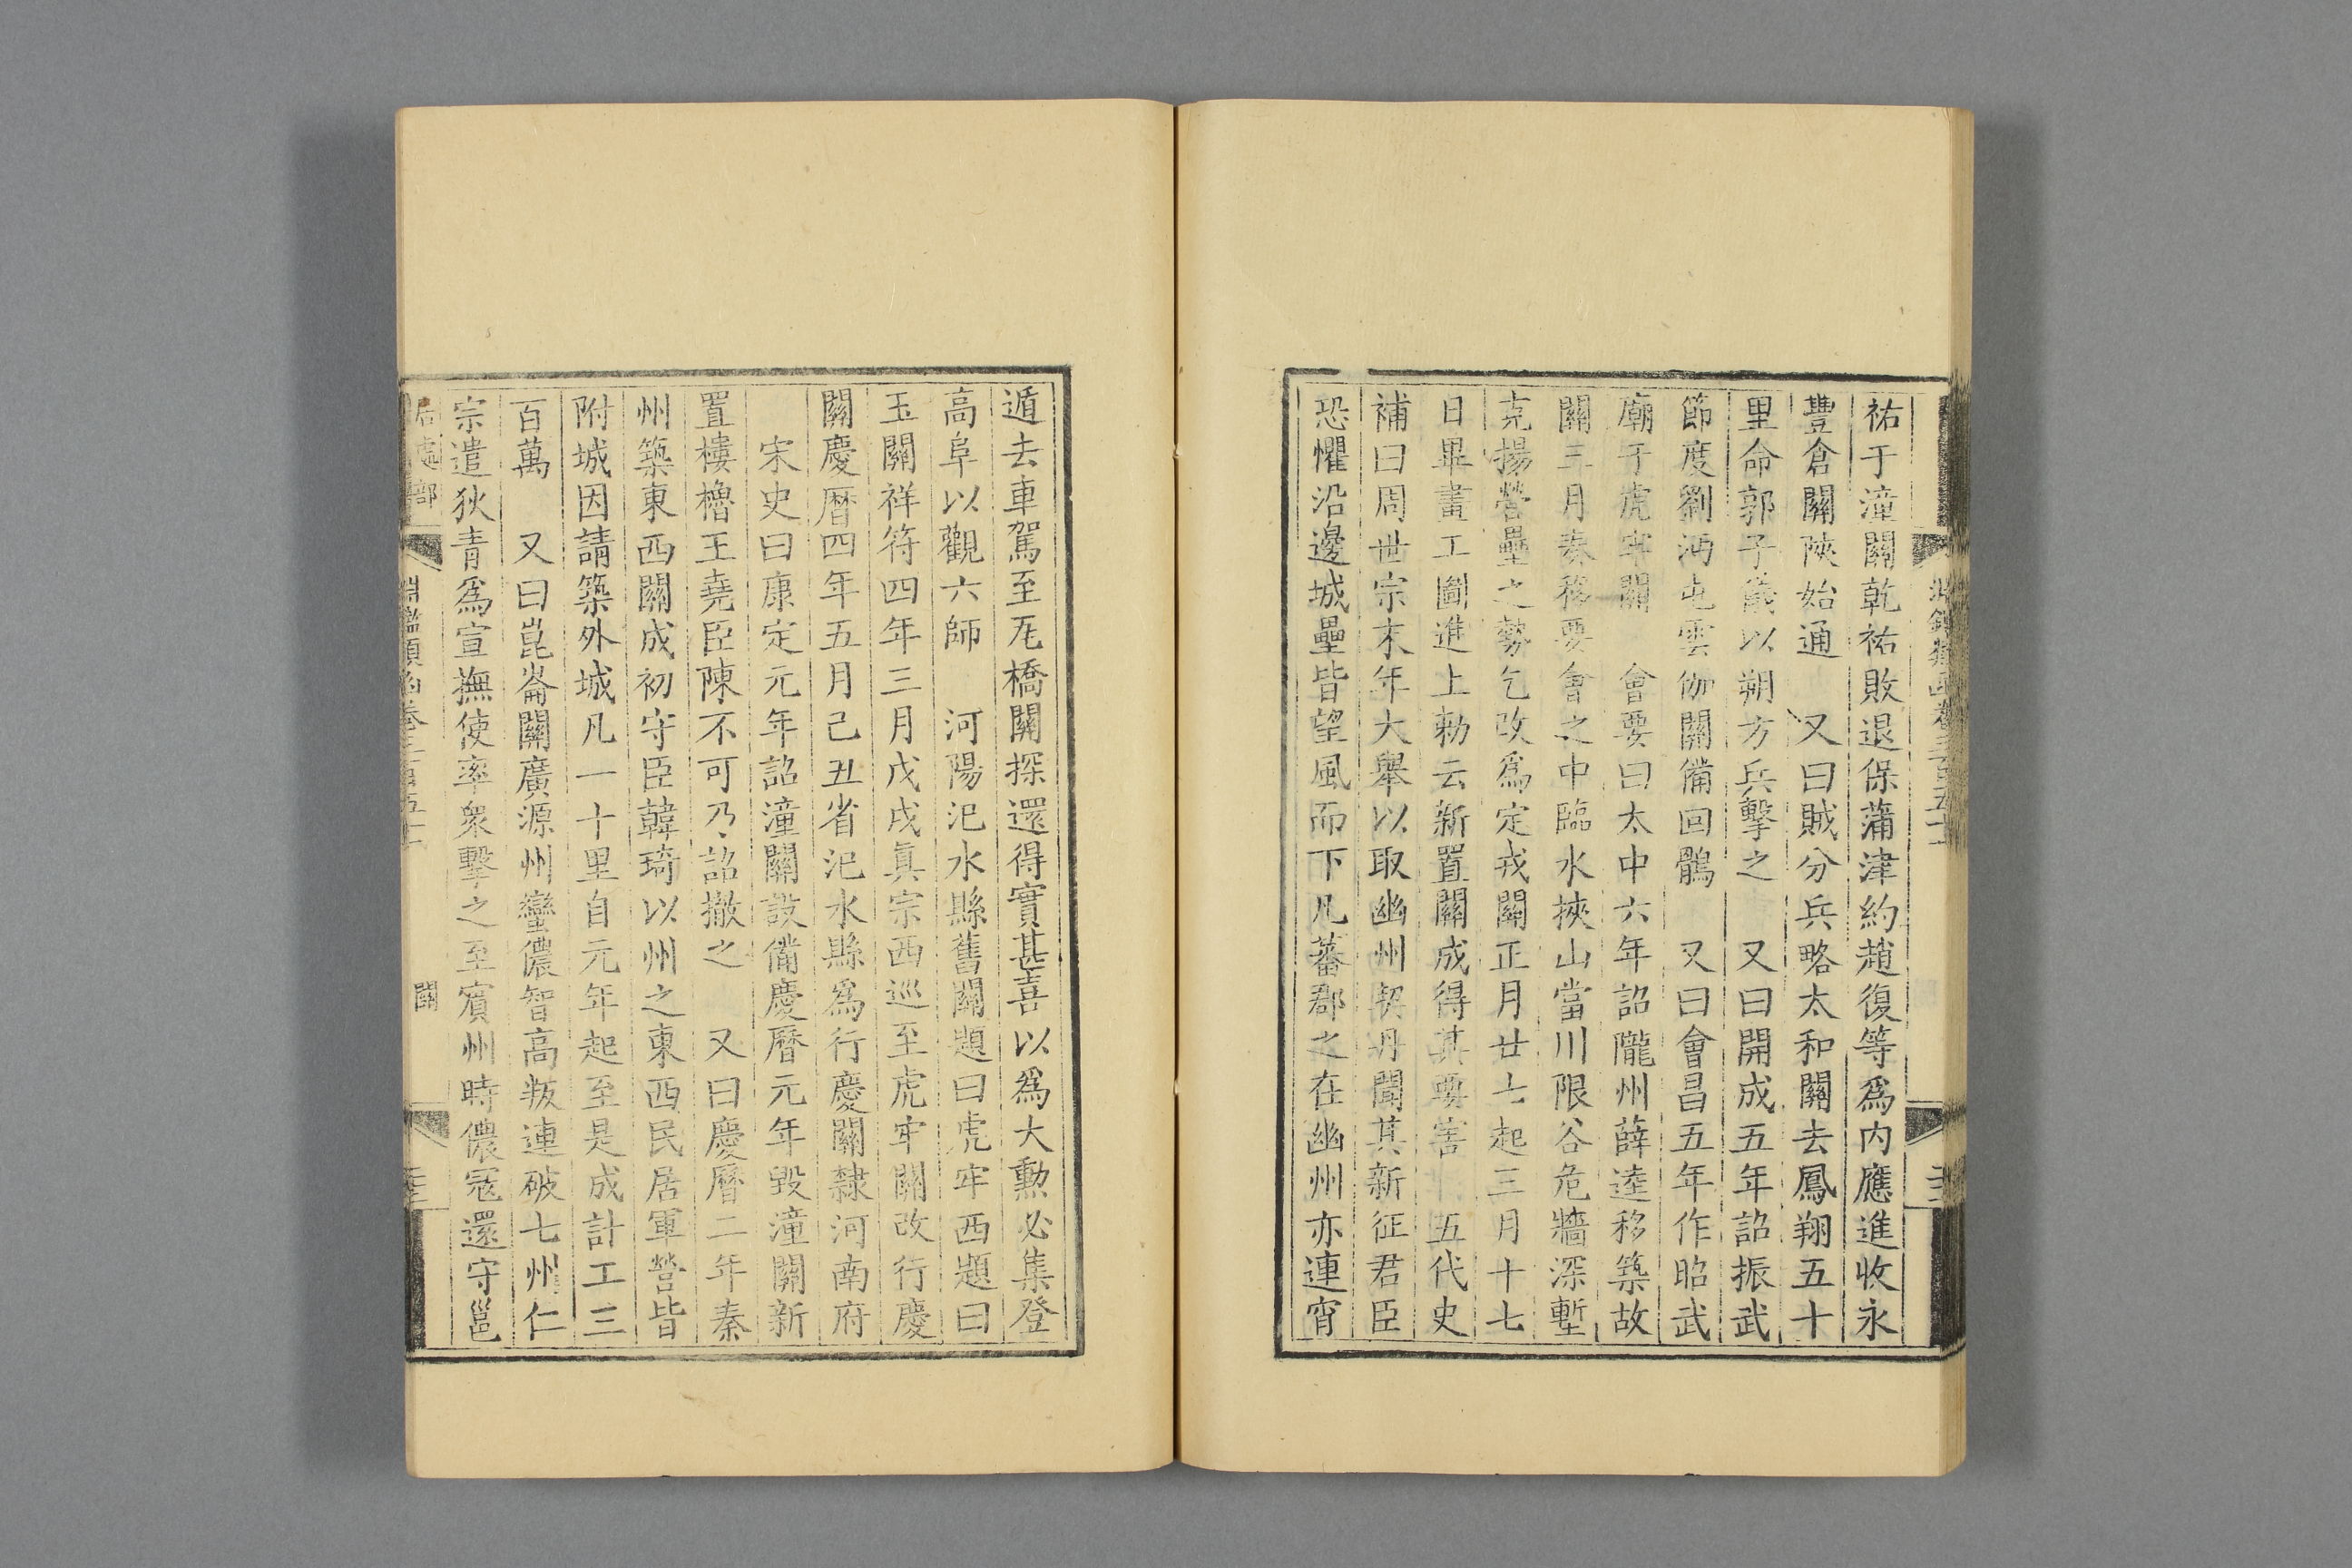 祐于潼關乾祐敗退保蒲津約趙復等爲内應進收永
豐倉關陝始通　又曰賊分兵略太和關去鳳翔五十
里命郭子儀以朔方兵擊之　又曰開成五年詔振武
節度劉沔屯雲伽關備回鶻　又曰會昌五年作昭武
廟于虎牢關　會要曰太中六年詔隴州薛逵移築故
關三月奏移要會之中臨水挾山當川限谷危牆深塹
克揚營壘之勢乞改爲定戎關正月廿七起三月十七
日畢畫工圖進上勅云新置關成得其要害　五代史
補曰周世宗末年大舉以取幽州契丹聞其新征君臣
恐懼沿邊城壘皆望風而下凡蕃郡之在幽州亦連宵
遁去車駕至瓦橋關探還得實甚喜以爲大勲必集登
高阜以觀六師　河陽汜水縣舊關題曰虎牢西題曰
玉關祥符四年三月戊戌眞宗西巡至虎牢關改行慶
關慶曆四年五月己丑省汜水縣爲行慶關隸河南府
宋史曰康定元年詔潼關設備慶曆元年毁潼關新
置樓櫓王堯臣陳不可乃詔撤之　又曰慶曆二年秦
州築東西關成初守臣韓琦以州之東西民居軍營皆
附城因請築外城凡一十里自元年起至是成計工三
百萬　又曰崑崙關廣源州蠻儂智高叛連破七州仁
宗遣狄青爲宣撫使率衆擊之至賓州時儂寇還守邕
居處部
淵鑑類函卷三百五十
關